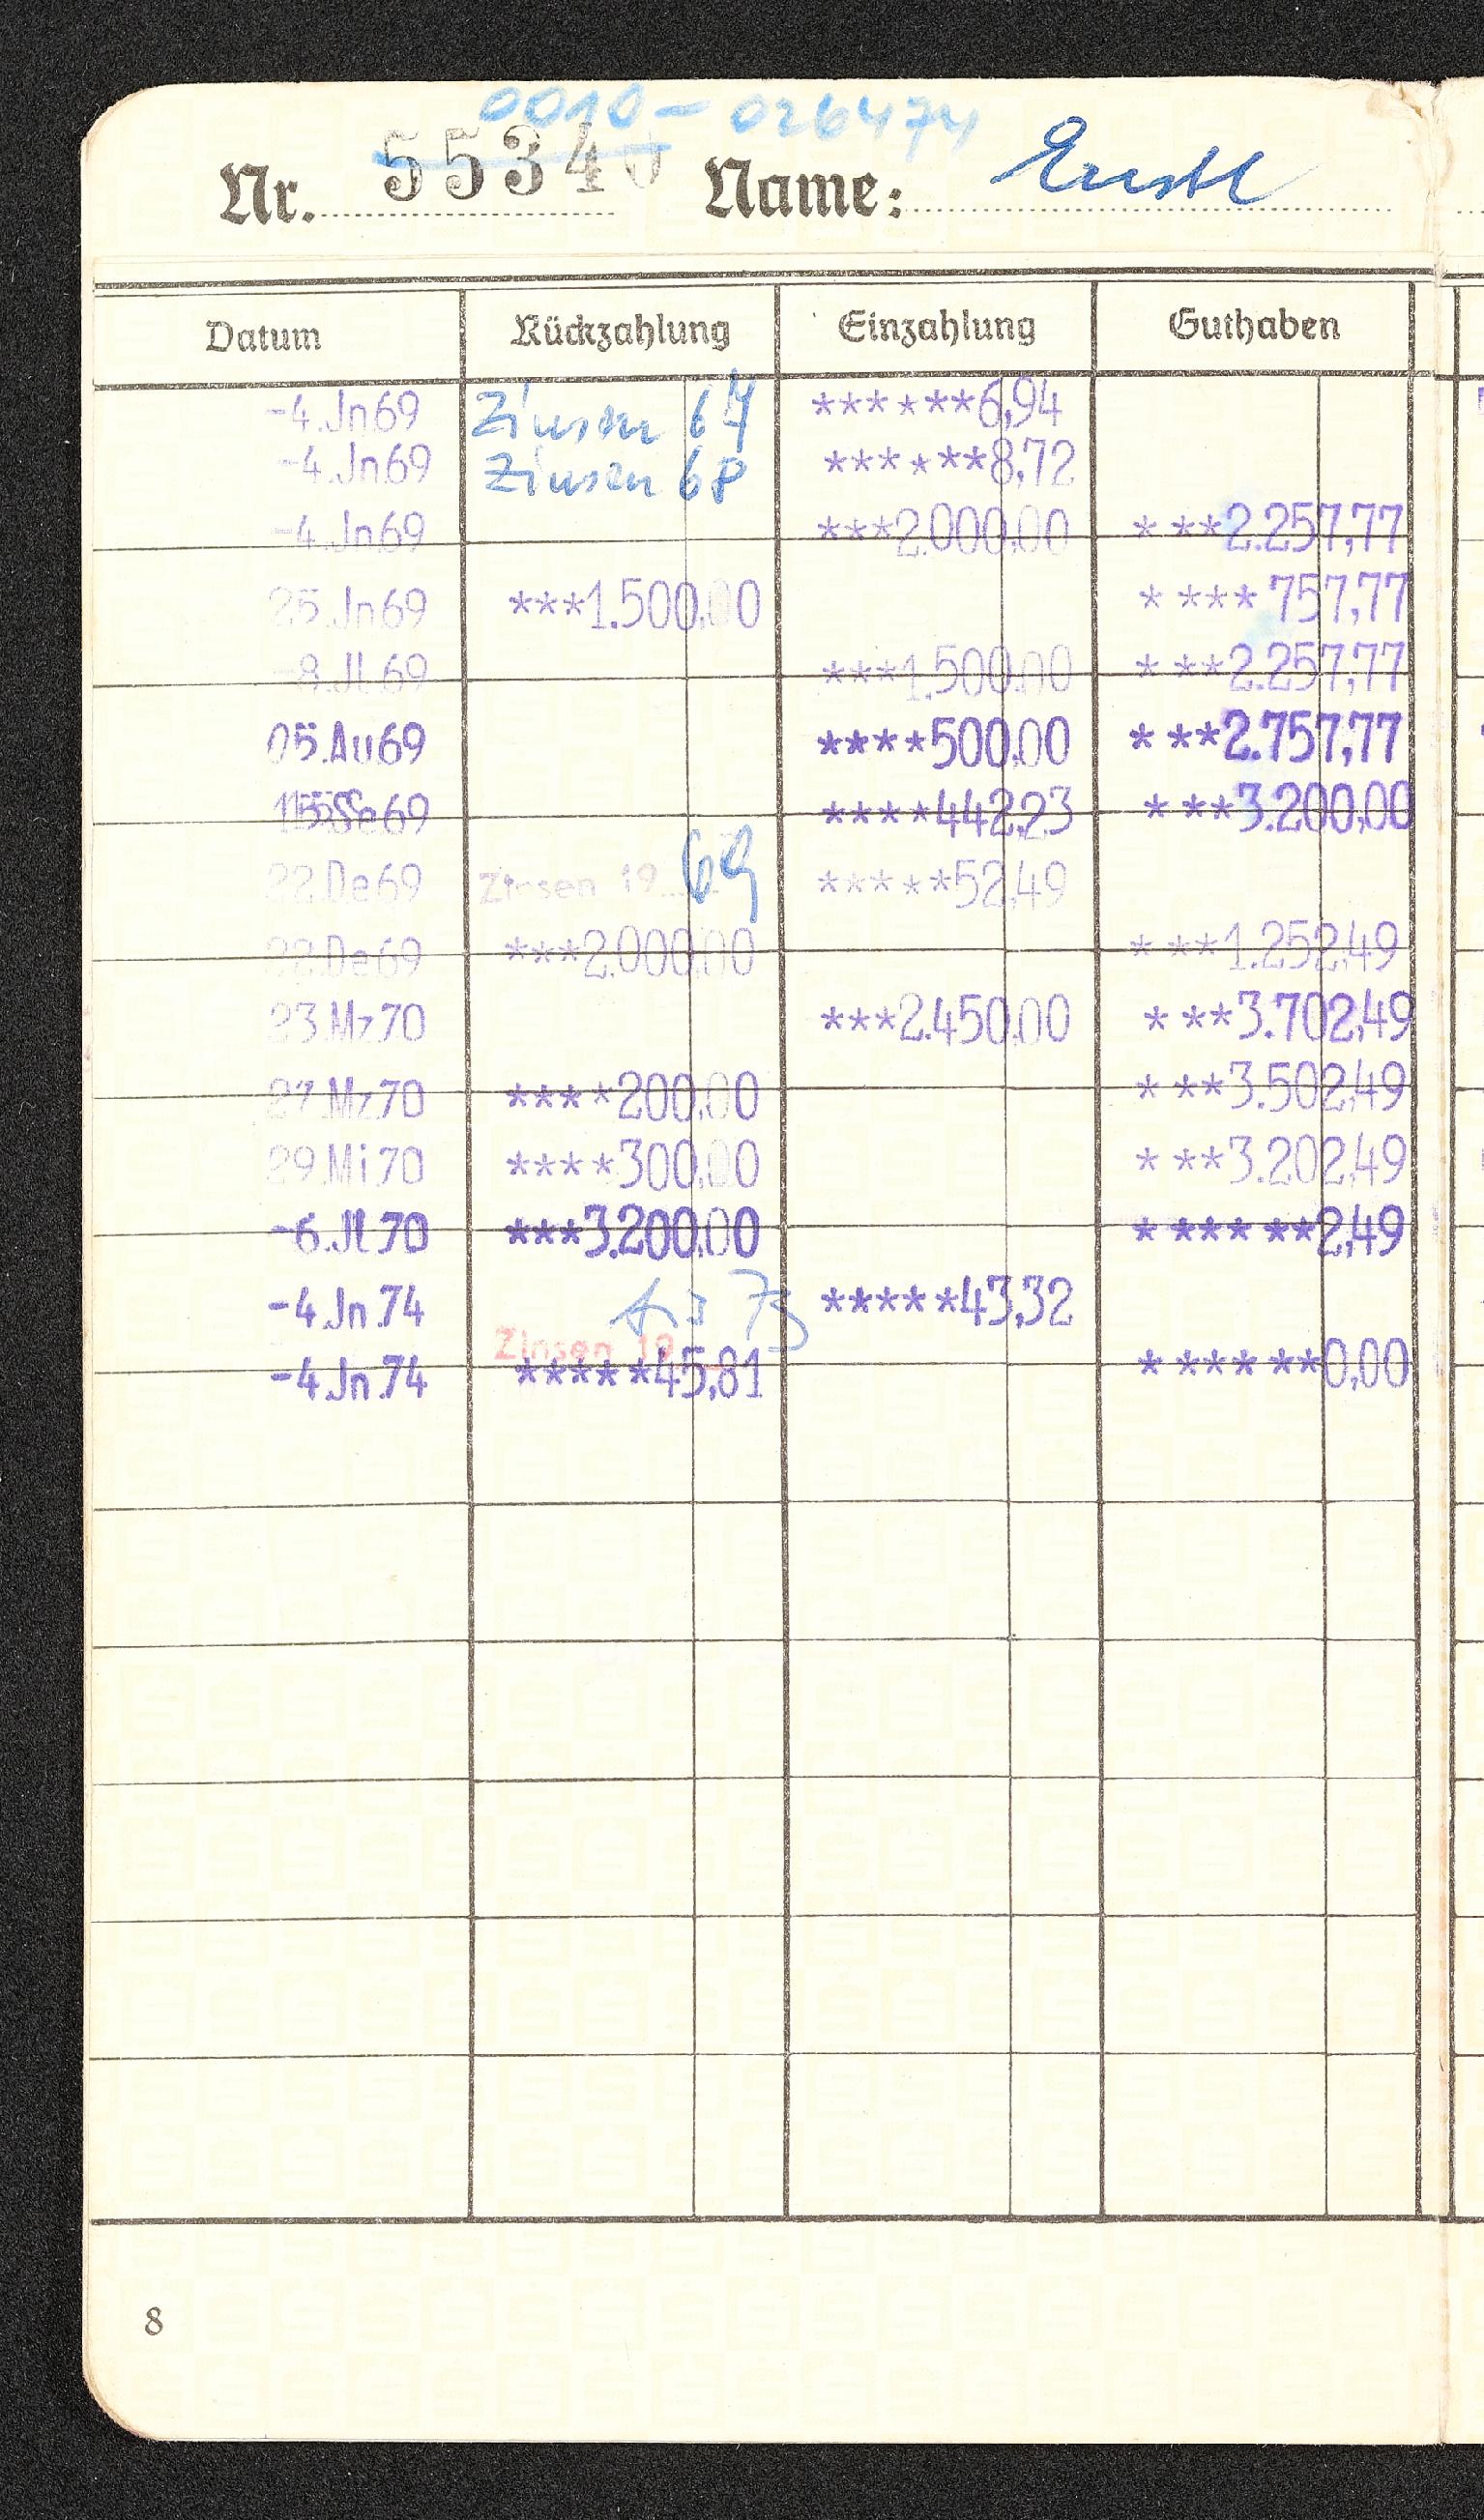 0010-026474
Nr. 55340 Name: Ernstl
Datum Rückzahlung Einzahlung Guthaben
-4.Jn69 Zinsen 67 ******6,94
-4.Jn69 Zinsen 68 ******8,72
-4.Jn69 ***2.000,00 ****2.257,77
25.Jn69 ***1.500,00 *****757,77
-8.Jl.69 ***1.500,00 ***2.257,77
05.Au69 ****500,00 ***2.757,77
15.Se69 ****442,23 ***3.200,00
22.De69 Zinsen 19 69 *****52,49
22.De69 ***2.000,00 ***1.252,49
23.Mz70 ***2.450,00 ***3.702,49
27.Mz70 ****200,00 ***3.502,49
29.Mi70 ****300,00 ***3.202,49
-6.Jl70 ***3.200,00 *******2,49
-4.Jn.74 73 *****43,32
Zinsen 19
-4.Jn.74 *****45,81 *******0,00
8